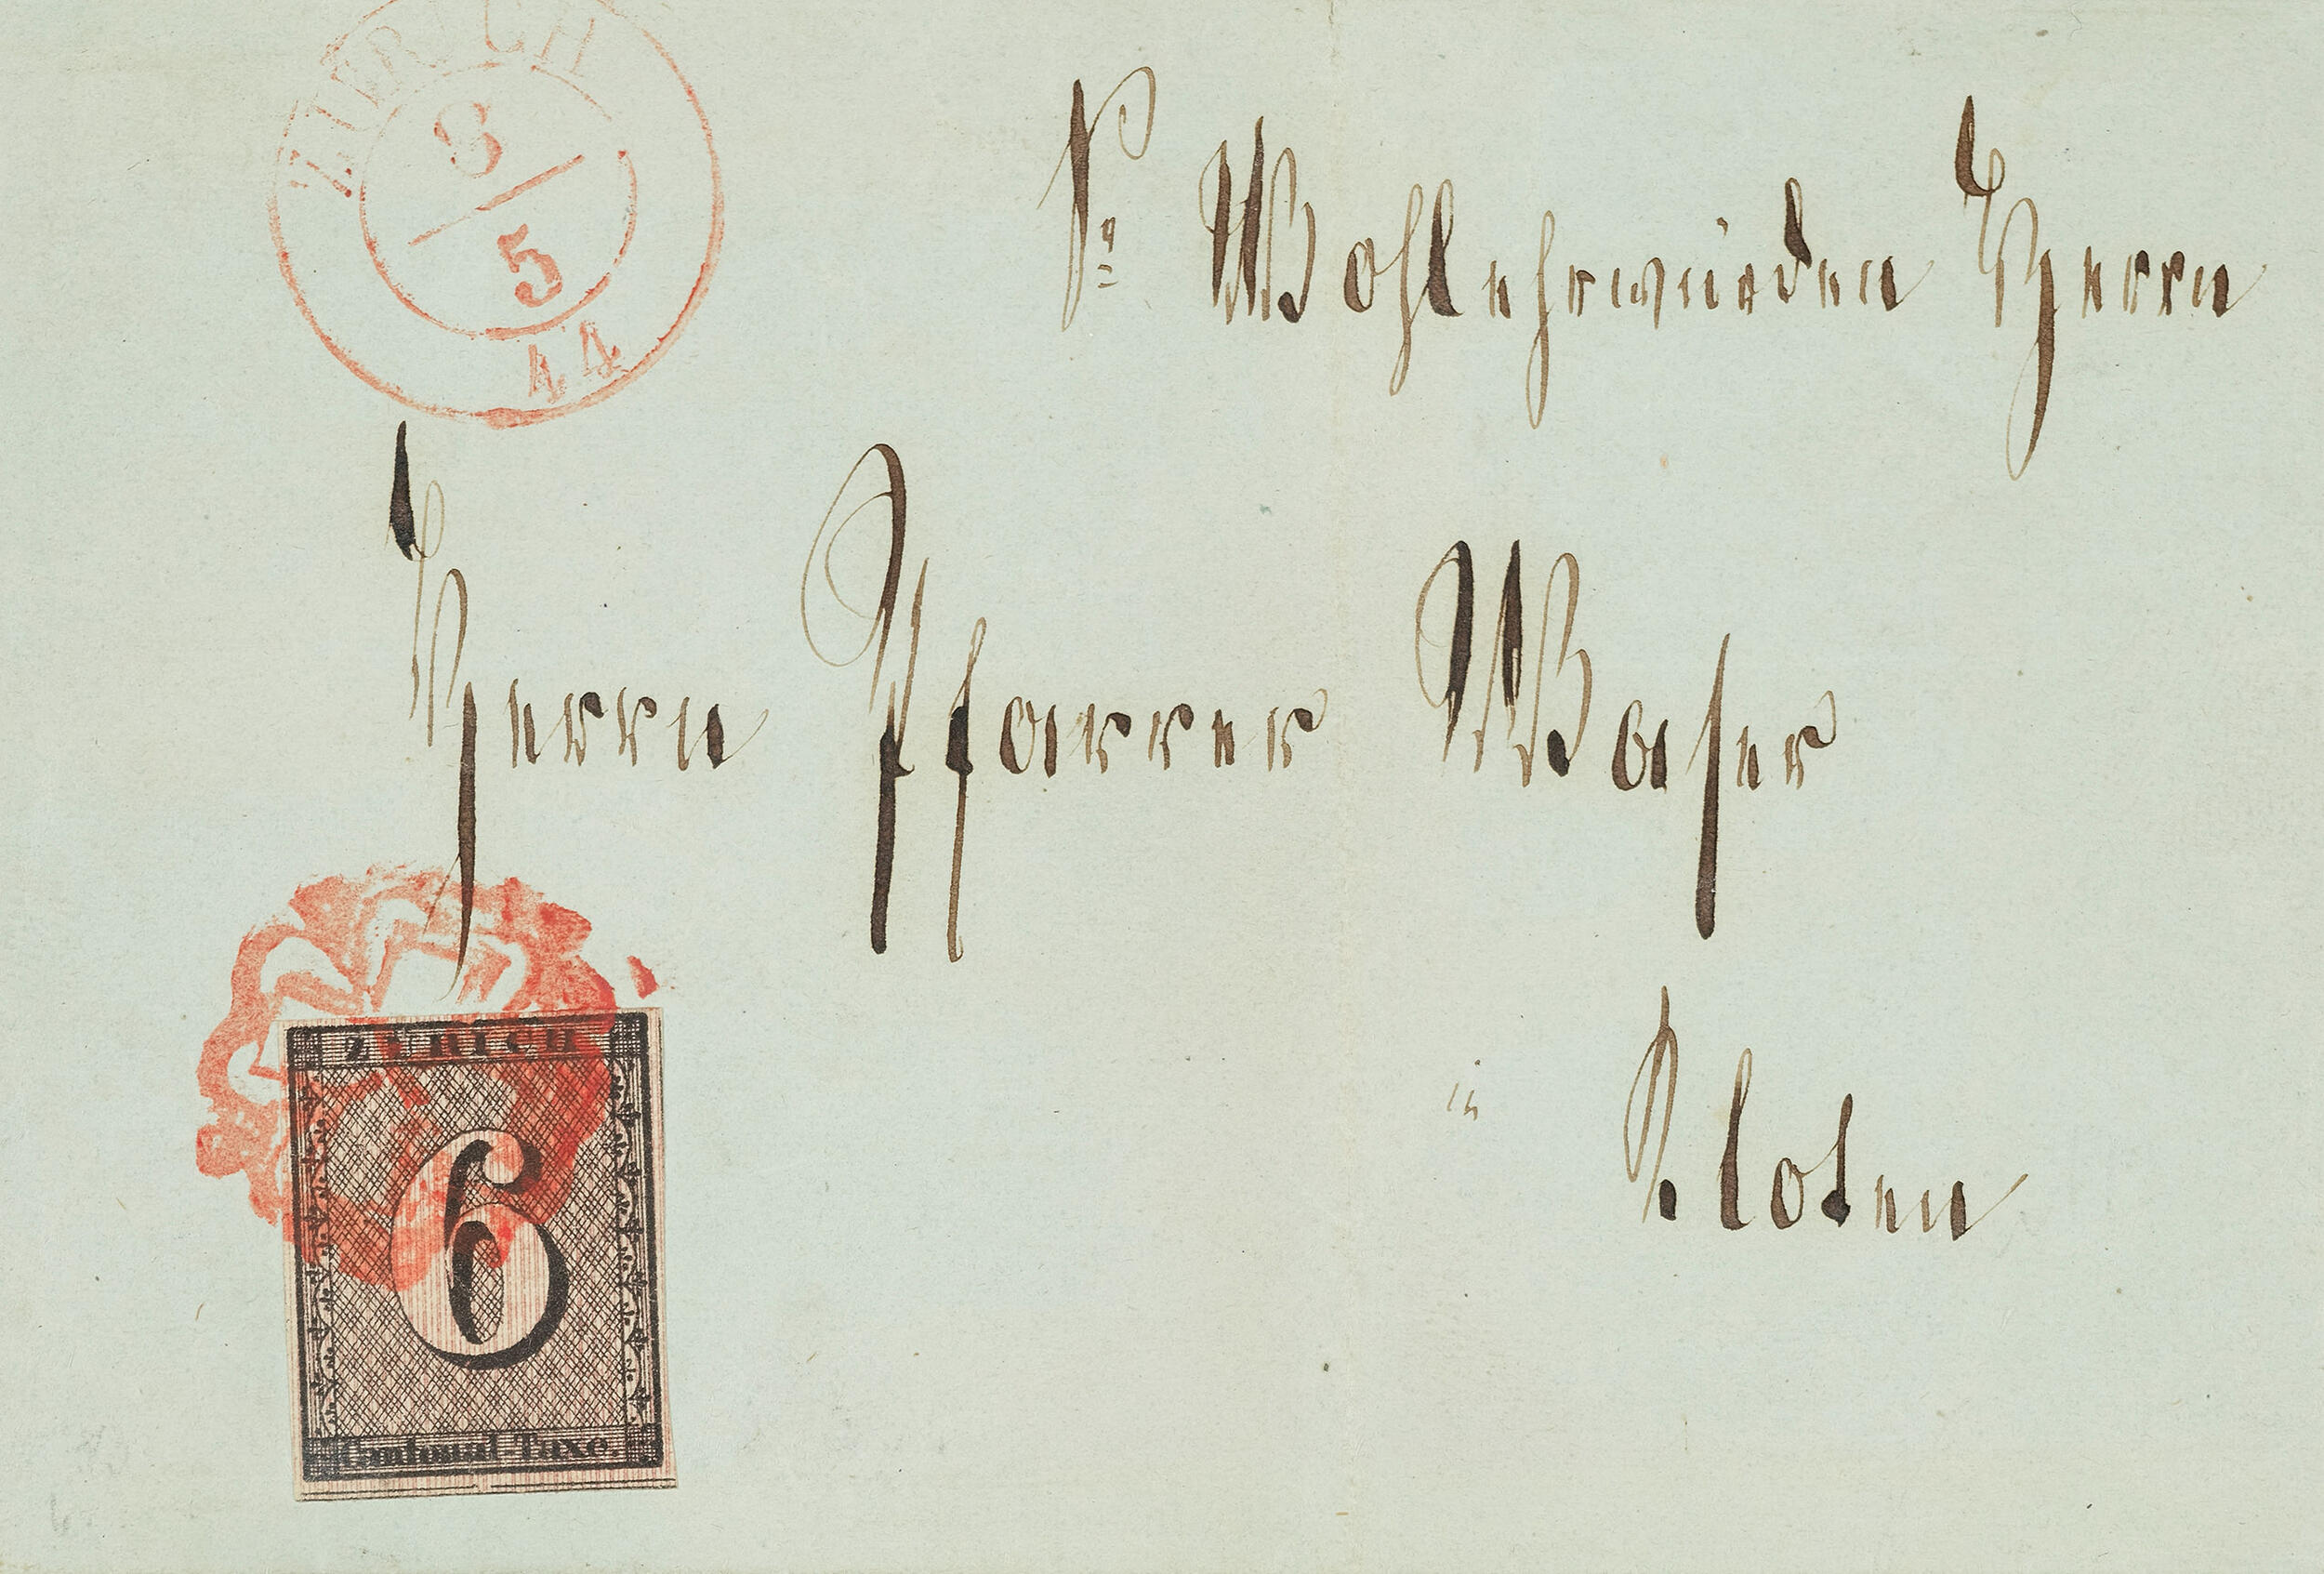 ZÜRICH
8
5
44
Sr Wohlehrwürden Herrn
Herrn Pfarrer Waser
in Kloten
ZÜRICH
6
Cantonal-Taxe.